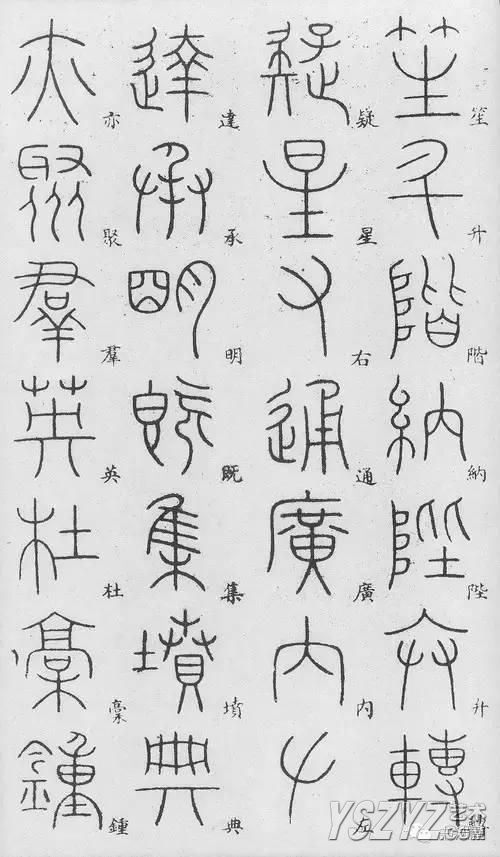 笙升階納陛弁轉
疑星右通廣内左
達承明既集墳典
亦聚羣英杜稾鍾
YSZYZ艺术
.COM